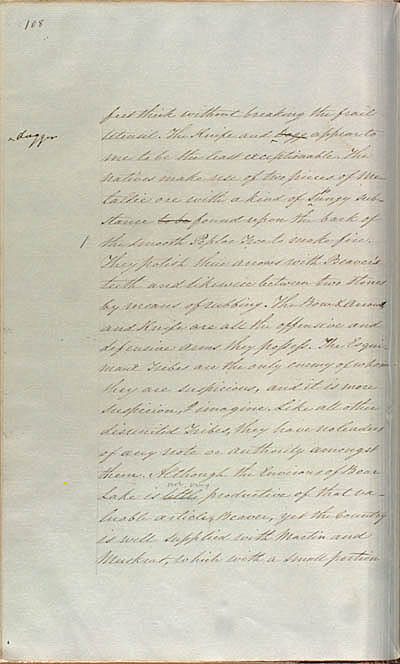 108
feet thick without breaking the frail
utensil. The Knife and dagg appear to
dagger
me to be the least exceptionable. The
natives make use of two pieces of Me-
tallic ore with a kind of fungy sub-
stance to be found upon the bark of
the smooth Poplar Tree to make fire.
They polish their arrows with Beaver's
teeth and likewise between two stones
by means of rubbing. The Bow & Arrow
and Knife are all the offensive and
defensive arms they possess. The Esqui-
maux Tribes are the only enemy of whom
they are suspicious, and it is mere
suspicion, I imagine. Like all other
disunited Tribes, they have no leaders
of any note or authority amongst
them. Although the Environs of Bear
not very
Lake is little productive of that va-
luable article, Beaver, yet the Country
is well supplied with Martin and
Muskrat, which with a small portion